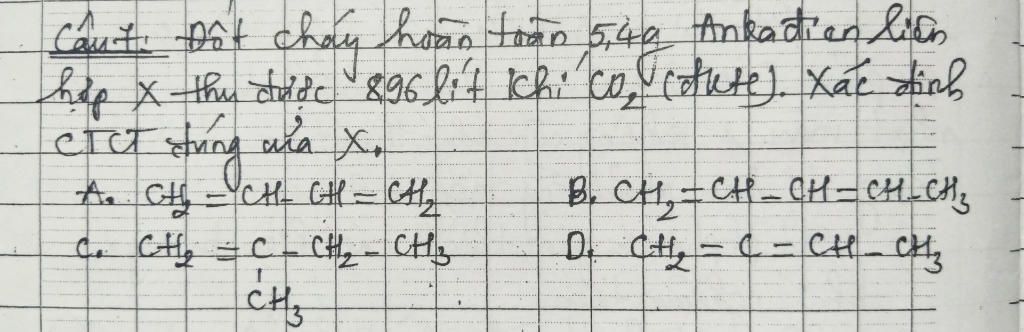 Câu 7: Đốt cháy hoàn toàn 5,4g Ankađien liên
hợp X thu được 8,96 lít khí CO₂ (đktc). Xác định
CTCT đúng của X.
A. CH₂ = CH - CH = CH₂ B. CH₂ = CH - CH = CH - CH₃
C. CH₂ = C - CH₂ - CH₃ D. CH₂ = C = CH - CH₃
CH₃